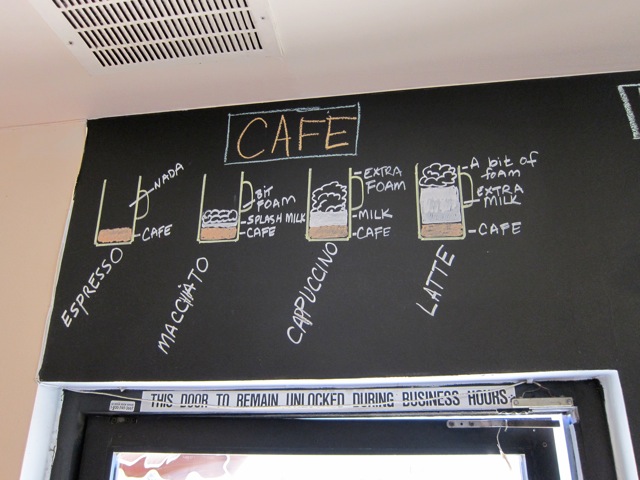 CAFÉ
NADA
CAFE
ESPRESSO
BIT
FOAM
SPLASH MILK
CAFE
MACCHIATO
EXTRA
FOAM
MILK
CAFE
CAPPUCCINO
A bit OF
FOAM
EXTRA
MILK
CAFE
LATTE
THIS DOOR TO REMAIN UNLOCKED DURING BUSINESS HOURS